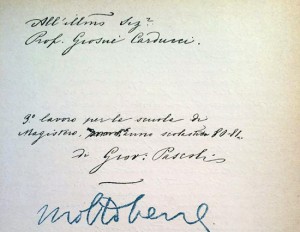 All'Illmo Sigr
Prof. Giosuè Carducci.
3o lavoro per la scuola di
Magistero, anno scolastico 80-81.
di Giov. Pascoli
molto bene.